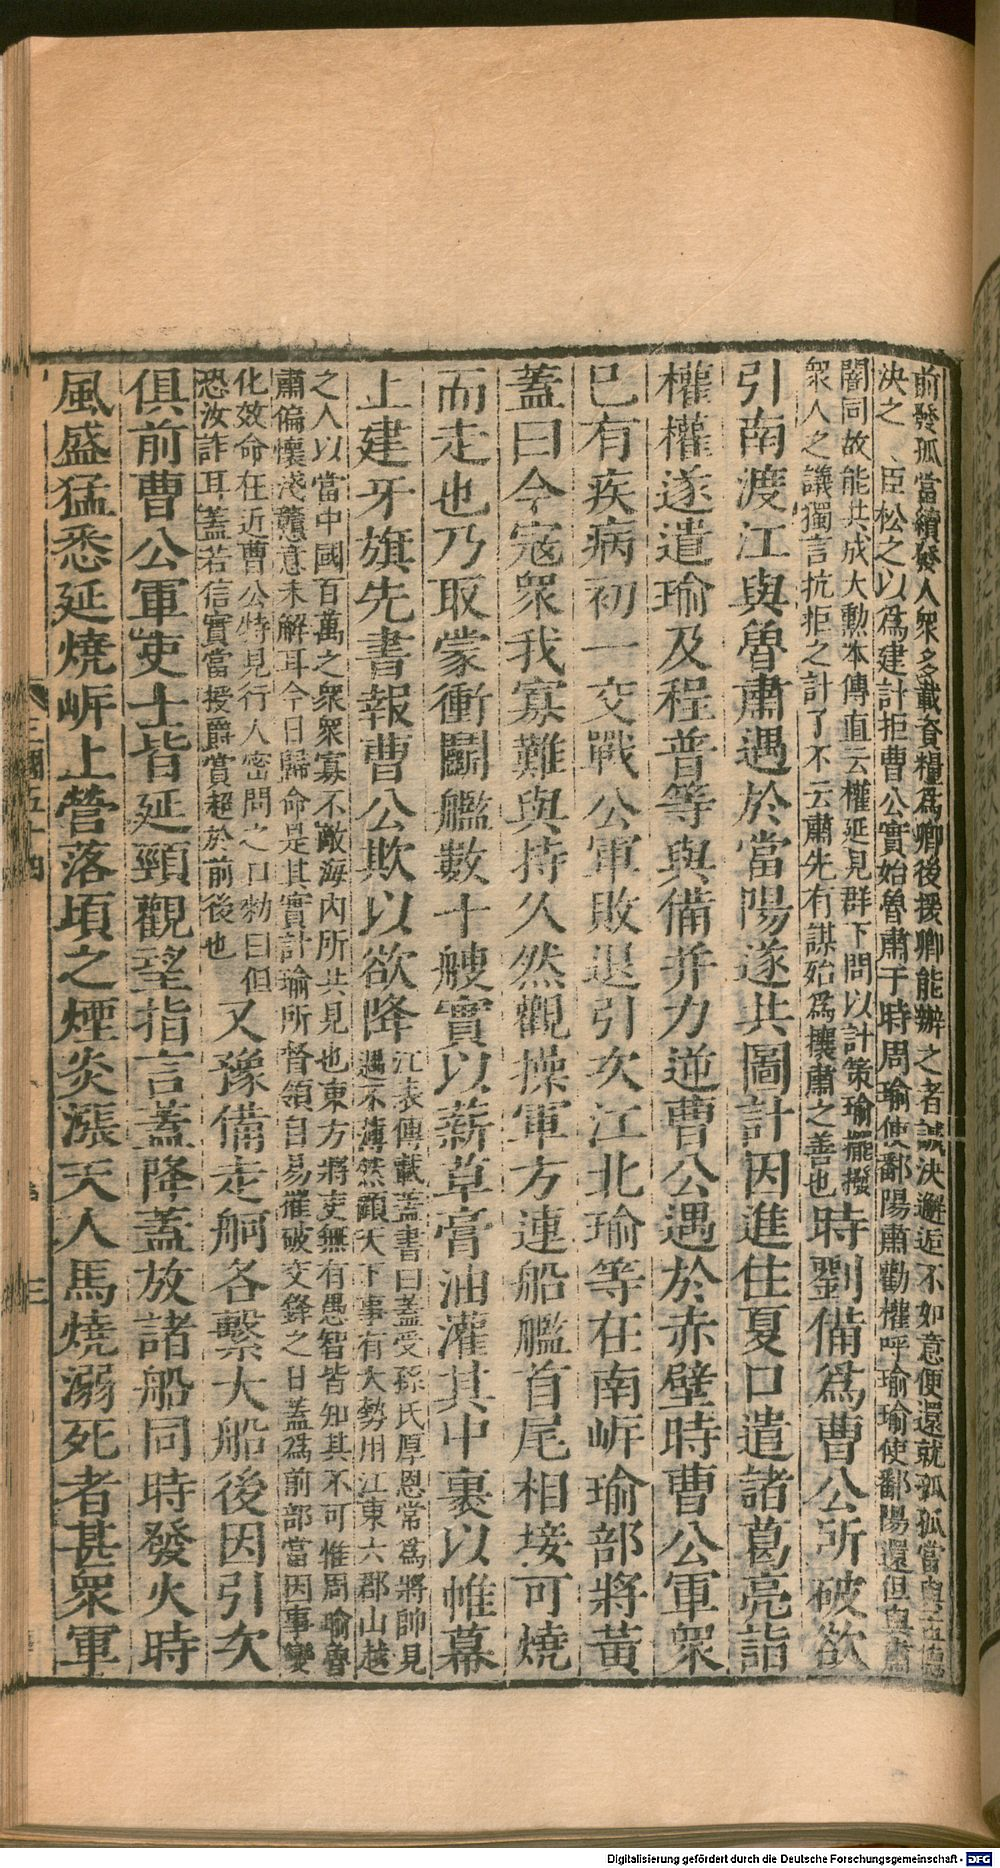 前發孤當續發人衆多載資糧爲卿後援卿能辦之者誠決邂逅不如意便還就孤孤當與孟德
決之 臣松之以爲建計拒曹公實始魯肅于時周瑜使鄱陽肅勸權呼瑜瑜使鄱陽還但與肅
闇同故能共成大勳本傳直云權延見群下問以計策瑜擺撥
衆人之議獨言抗拒之計了不云肅先有謀始爲攘肅之善也
時劉備爲曹公所破欲
引南渡江與魯肅遇於當陽遂共圖計因進住夏口遣諸葛亮詣
權權遂遣瑜及程普等與備并力逆曹公遇於赤壁時曹公軍衆
已有疾病初一交戰公軍敗退引次江北瑜等在南岍瑜部將黃
蓋曰今寇衆我寡難與持久然觀操軍方連船艦首尾相接可燒
而走也乃取蒙衝鬭艦數十艘實以薪草膏油灌其中裹以帷幕
上建牙旗先書報曹公欺以欲降
江表傳載蓋書曰蓋受孫氏厚恩常爲將帥見
遇不薄然顧天下事有大勢用江東六郡山越
之人以當中國百萬之衆衆寡不敵海內所共見也東方將吏無有愚智皆知其不可惟周瑜魯
肅偏懷淺戇意未解耳今日歸命是其實計瑜所督領自易摧破交鋒之日蓋爲前部當因事變
化效命在近曹公特見行人密問之口勑曰但
恐汝詐耳蓋若信實當授爵賞超於前後也
又豫備走舸各繫大船後因引次
俱前曹公軍吏士皆延頸觀望指言蓋降蓋放諸船同時發火時
風盛猛悉延燒岍上營落頃之煙炎漲天人馬燒溺死者甚衆軍
三國五十四
三
Digitalisierung gefördert durch die Deutsche Forschungsgemeinschaft - DFG